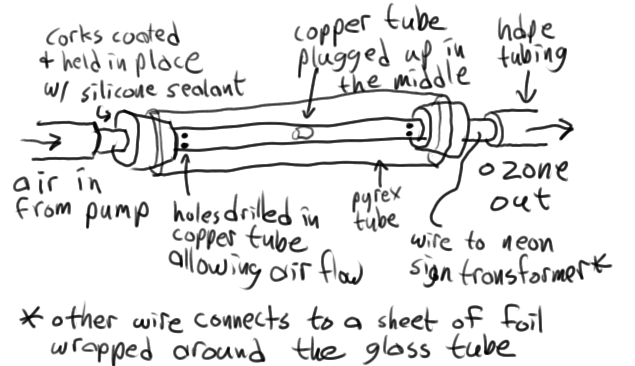 corks coated
& held in place
w/ silicone sealant
copper tube
plugged up in
the middle
hdpe
tubing
air in
from pump
holes drilled in
copper tube
allowing air flow
pyrex
tube
ozone
out
wire to neon
sign transformer*
* other wire connects to a sheet of foil
wrapped around the glass tube